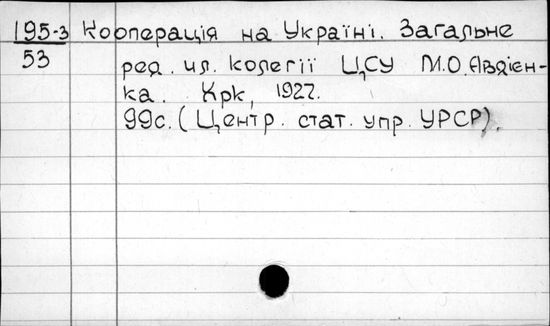 195-3 Кооперація на Україні. Загальне
53 ред. чл. колегії ЦСУ М.О.Авдієн-
ка. Крк, 1927.
99с. (Центр. стат. упр. УРСР).